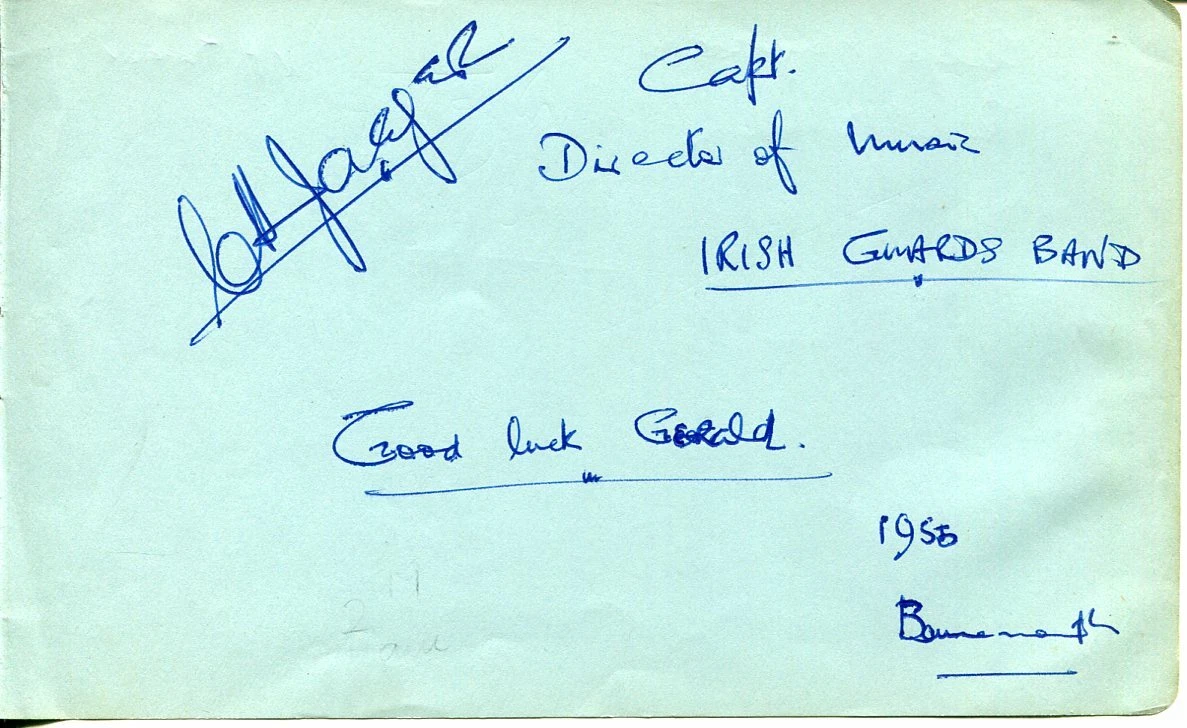 CHJaeger
Capt.
Director of Music
IRISH GUARDS BAND
Good luck Gerald.
1955
Bournemouth